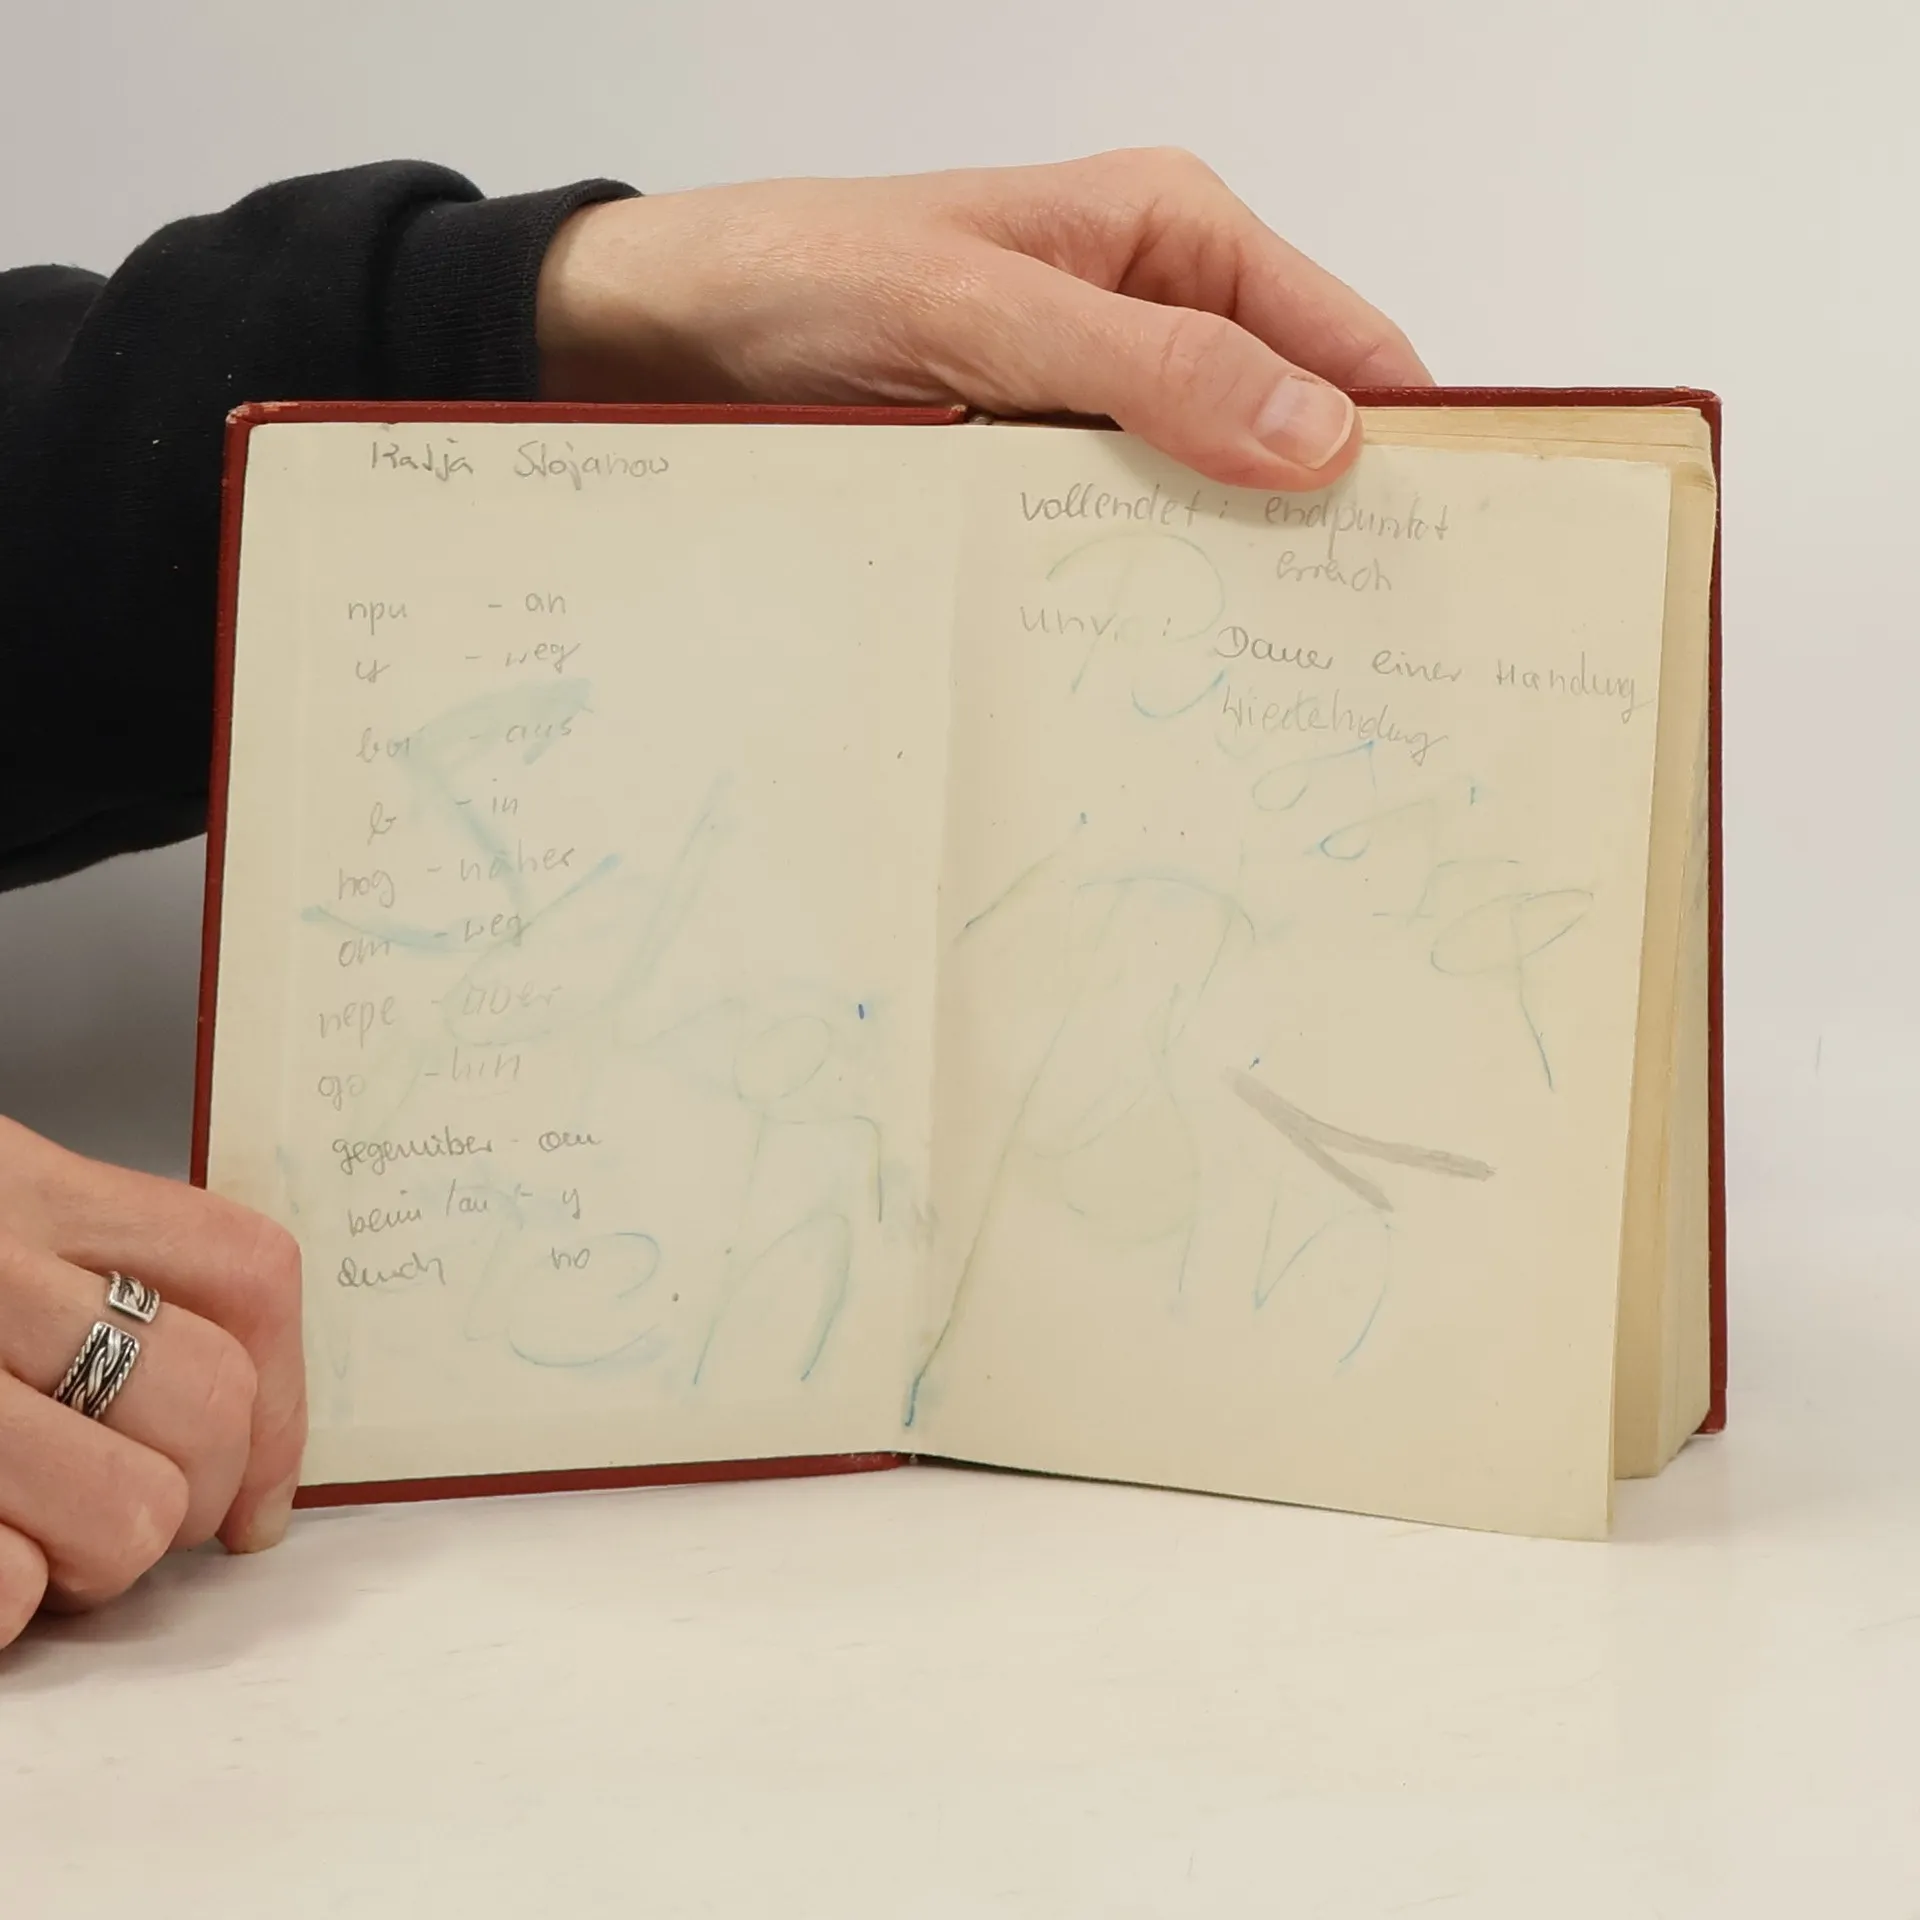 Katja Stojanow
при - an
у - weg
вы - aus
в - in
под - näher
от - weg
пере - über
до - hin
gegenüber - от
beim / an - у
durch по
vollendet : endpunkt
erreich
unv. : Dauer einer Handung
Wiederholung